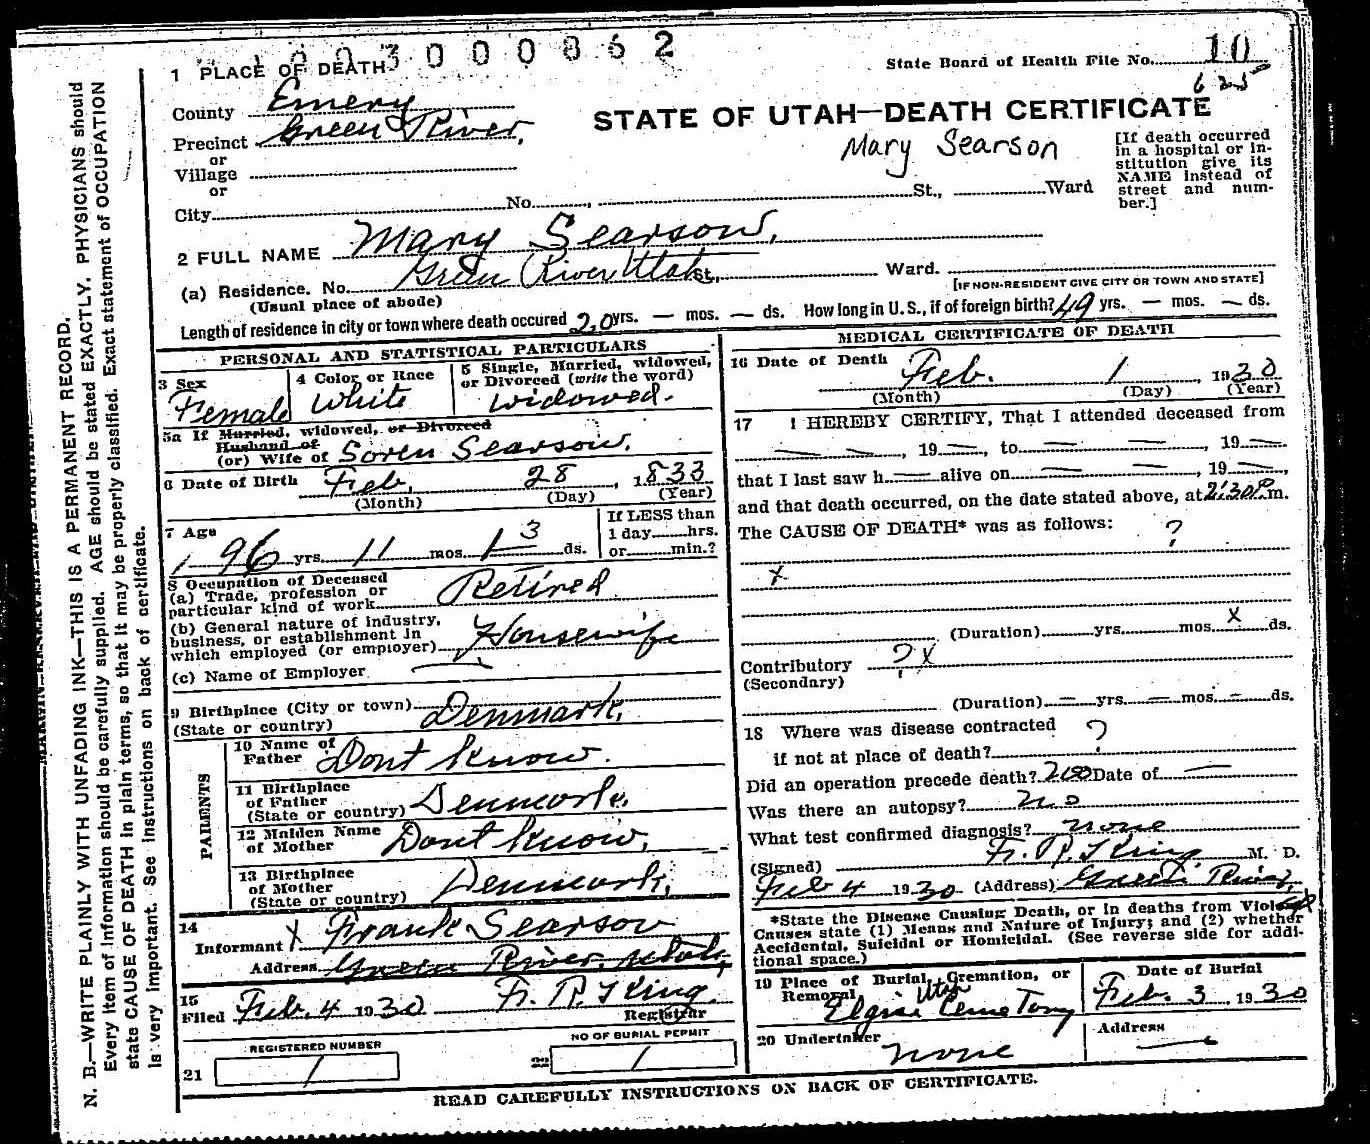 3 0 0 0 8 6 2
1 PLACE OF DEATH
State Board of Health File No. 10
625
County Emery
STATE OF UTAH—DEATH CERTIFICATE
Precinct Green River,
or
Mary Searson
Village
or
City No. , St., Ward
[If death occurred in a hospital or in-
stitution give its
NAME instead of
street and num-
ber.]
2 FULL NAME Mary Searson,
(a) Residence. No. Green River Utah St., Ward.
(Usual place of abode)
[IF NON-RESIDENT GIVE CITY OR TOWN AND STATE]
Length of residence in city or town where death occured 20 yrs. — mos. — ds. How long in U. S., if of foreign birth? 49 yrs. — mos. — ds.
PERSONAL AND STATISTICAL PARTICULARS
3 Sex
Female
4 Color or Race
White
5 Single, Married, widowed,
or Divorced (write the word)
widowed.
5a If Married, widowed, or Divorced
Husband of
(or) Wife of Soren Searson.
6 Date of Birth Feb. 28, 1833
(Month) (Day) (Year)
7 Age
96 yrs. 11 mos. 3 ds.
If LESS than
1 day hrs.
or min.?
8 Occupation of Deceased
(a) Trade, profession or
particular kind of work Retired
(b) General nature of industry,
business, or establishment in
which employed (or employer) Housewife
(c) Name of Employer —
9 Birthplace (City or town)
(State or country) Denmark.
PARENTS
10 Name of
Father Dont know.
11 Birthplace
of Father
(State or country) Denmark.
12 Maiden Name
of Mother Dont know.
13 Birthplace
of Mother
(State or country) Denmark.
14
Informant X Frank Searson
Address Green River, Utah,
15
Filed Feb. 4 1930 Fr. R. King.
Registrar
REGISTERED NUMBER
21 1
NO OF BURIAL PERMIT
22 1
MEDICAL CERTIFICATE OF DEATH
16 Date of Death Feb. 1, 1930
(Month) (Day) (Year)
17 I HEREBY CERTIFY, That I attended deceased from
— —, 19 —, to — —, 19 —
that I last saw h — alive on — —, 19 —,
and that death occurred, on the date stated above, at 2:30 P. m.
The CAUSE OF DEATH* was as follows: ?
X
(Duration) yrs. mos. X ds.
Contributory ? X
(Secondary)
(Duration) — yrs. — mos. — ds.
18 Where was disease contracted
if not at place of death? ?
Did an operation precede death? no Date of —
Was there an autopsy? no
What test confirmed diagnosis? none
(Signed) Fr. R. King, M. D.
Feb 4 1930 (Address) Green River,
*State the Disease Causing Death, or in deaths from Violent
Causes state (1) Means and Nature of Injury; and (2) whether
Accidental, Suicidal or Homicidal. (See reverse side for addi-
tional space.)
19 Place of Burial, Cremation, or
Removal Utah
Elgin Cemetery
Date of Burial
Feb. 3 1930
20 Undertaker none
Address —
READ CAREFULLY INSTRUCTIONS ON BACK OF CERTIFICATE.
N. B.—WRITE PLAINLY WITH UNFADING INK—THIS IS A PERMANENT RECORD.
Every item of information should be carefully supplied. AGE should be stated EXACTLY. PHYSICIANS should
state CAUSE OF DEATH in plain terms, so that it may be properly classified. Exact statement of OCCUPATION
is very important. See instructions on back of certificate.